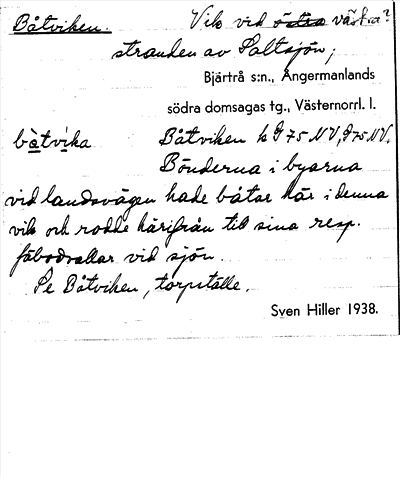 Båtviken. Vik vid östra västra?
stranden av Saltsjön;
Bjärtrå s:n., Ångermanlands
södra domsagas tg., Västernorrl. l.
båtvika Båtviken k G 75 NV, G 75 NV.
Bönderna i byarna
vid landsvägen hade båtar här i denna
vik och rodde härifrån till sina resp.
fäbodvallar vid sjön.
Se Båtviken, torpställe.
Sven Hiller 1938.